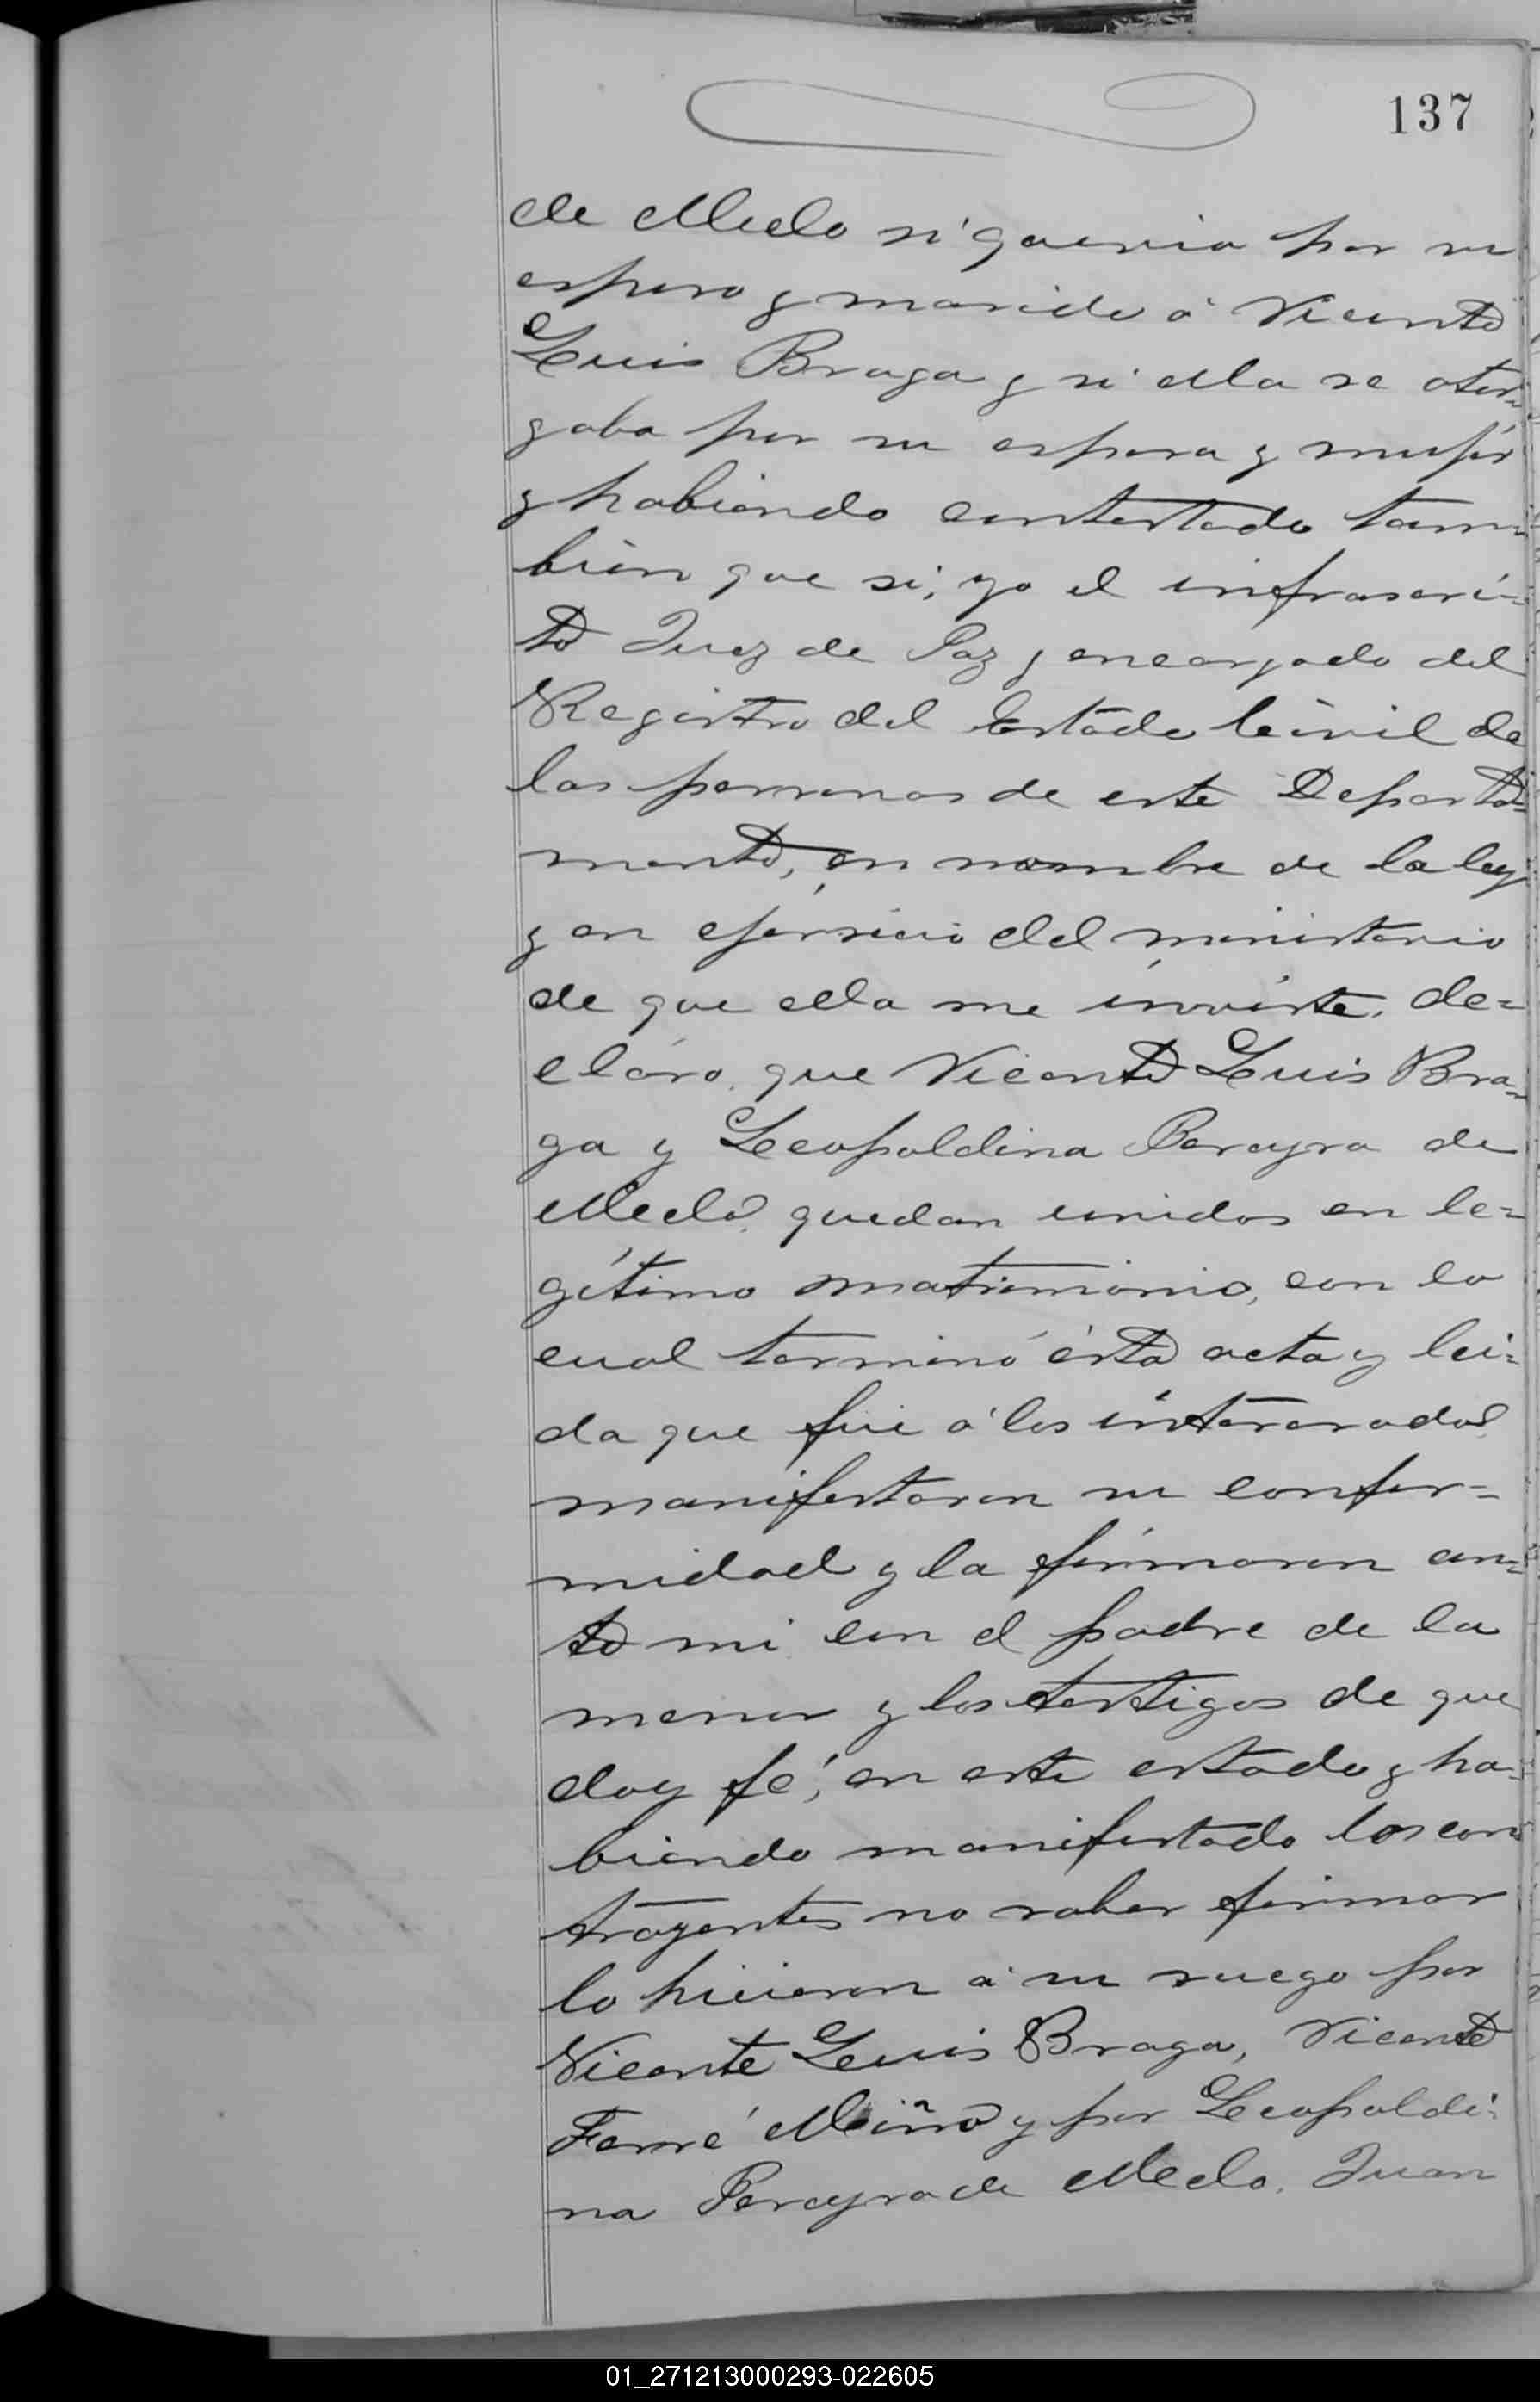 137
de Melo si queria por su
esposo y marido á Vicente
Luis Braga y si ella se otor-
gaba por su esposa y mujer
y habiendo contestado tam-
bien que si, yo el infrascri-
to Juez de Paz y encargado del
Registro del Estado Civil de
las personas de este Departa-
mento, en nombre de la ley
y en ejersicio del ministerio
de que ella me inviste, de=
claro, que Vicente Luis Bra-
ga y Leopoldina Pereyra de
Melo, quedan unidos en le=
gítimo matrimonio, con lo
cual terminó ésta acta y lei=
da que fue á los interesados
manifestaron su confor=
midad y la firmaron an-
te mi con el padre de la
menor y los testigos de que
doy fé, en este estado y ha-
biendo manifestado los con
trayentes no saber firmar
lo hicieron á su ruego por
Vicente Luis Braga, Vicente
Ferré Miño y por Leopoldi-
na Pereyra de Melo, Juan
01_271213000293-022605